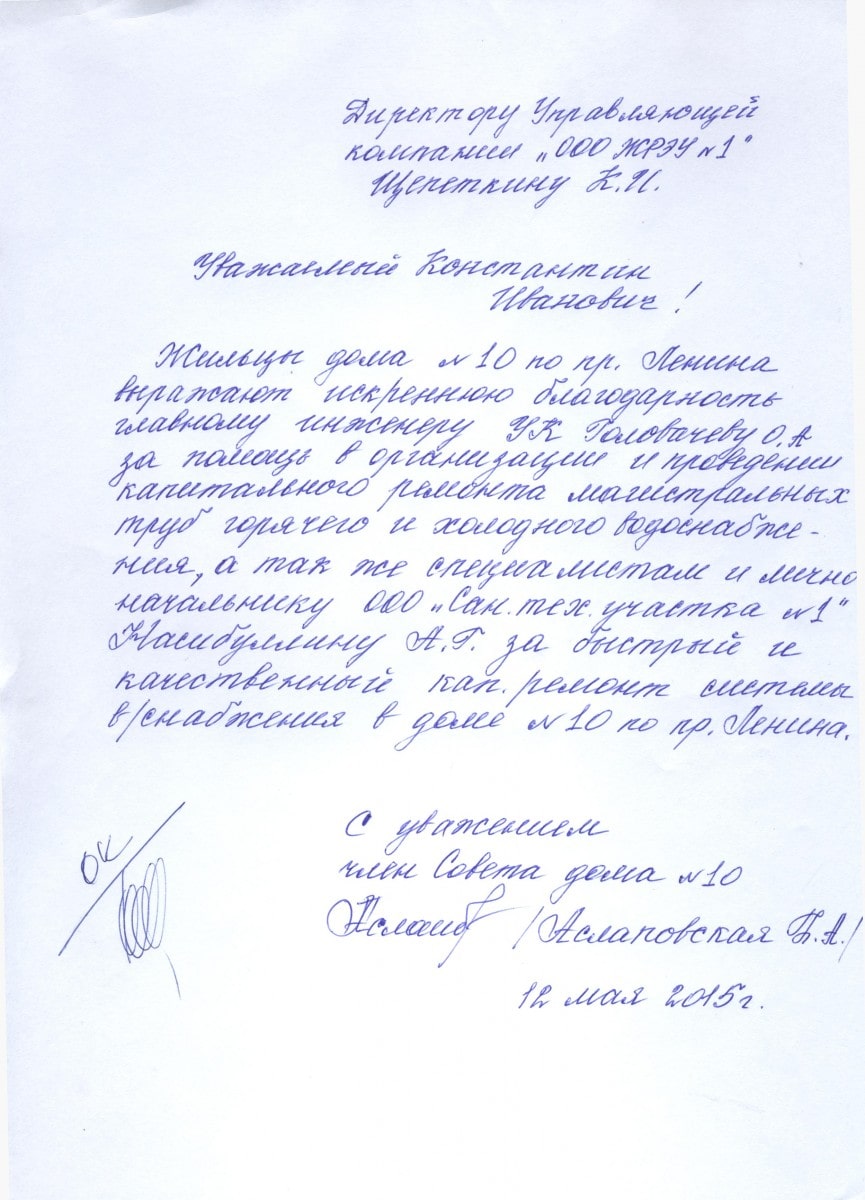 Директору Управляющей
компании „ООО ЖРЭУ №1"
Щепеткину К.И.
Уважаемый Константин
Иванович!
Жильцы дома №10 по пр. Ленина
выражают искреннюю благодарность
главному инженеру УК Головачеву О.А
за помощь в организации и проведении
капитального ремонта магистральных
труб горячего и холодного водоснабже-
ния, а так же специалистам и лично
начальнику ООО „Сан.тех.участка №1"
Насибуллину А.Г. за быстрый и
качественный кап.ремонт системы
в/снабжения в доме №10 по пр. Ленина.
С уважением
член Совета дома №10
/Аслаповская Б.А./
12 мая 2015г.
ОК